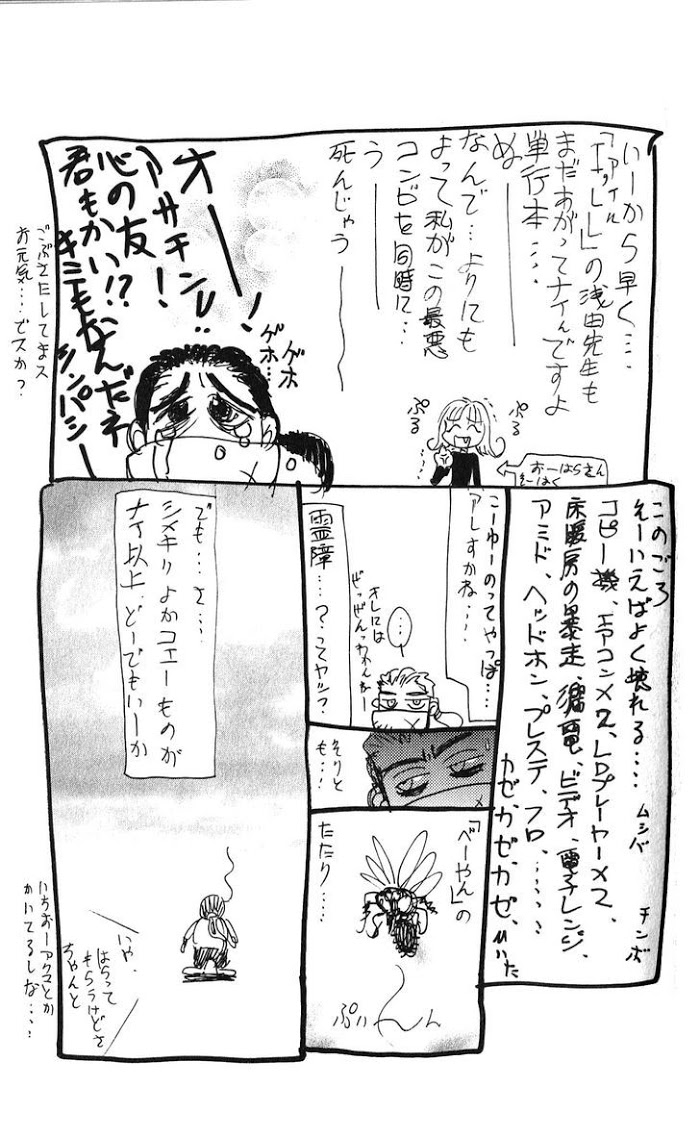 いーから早く…
「ファイル
の浅田先生も
まだあがってナイんですよ
単行本…
ぬ
なんで…よりにも
よって私がこの最悪
コンビを同時に…
う
死んじゃう
ぷる
ぷる
おーはらさん
そーはく
オー!
アサチン!!
心の友!
君もかい!?
キミもなんだネ
シンパシー
ゲホ
ゲホ…
ごぶさたしてまス
お元気…でスか?
このごろ
そーいえばよく壊れる…
コピー機、エアコン×2、LDプレーヤー×2、
床暖房の暴走、漏電、ビデオ、電子レンジ、
アミド、ヘッドホン、プレステ、フロ、……
カゼ、カゼ、カゼ、
ムシバ
チンボ
こーゆーのってやっぱ…
アレすかね…
…
オレには
霊障…?ってヤツ?
そりと
も…
「べーやん」の
たたり…
ぷぃーんん
でも…さ…
シメキリよかコエーものが
ナイ以上、どーでもいーか
いや、
はらって
もらうけどさ
ちゃんと
いちおーアクマとか
かいてるしな…